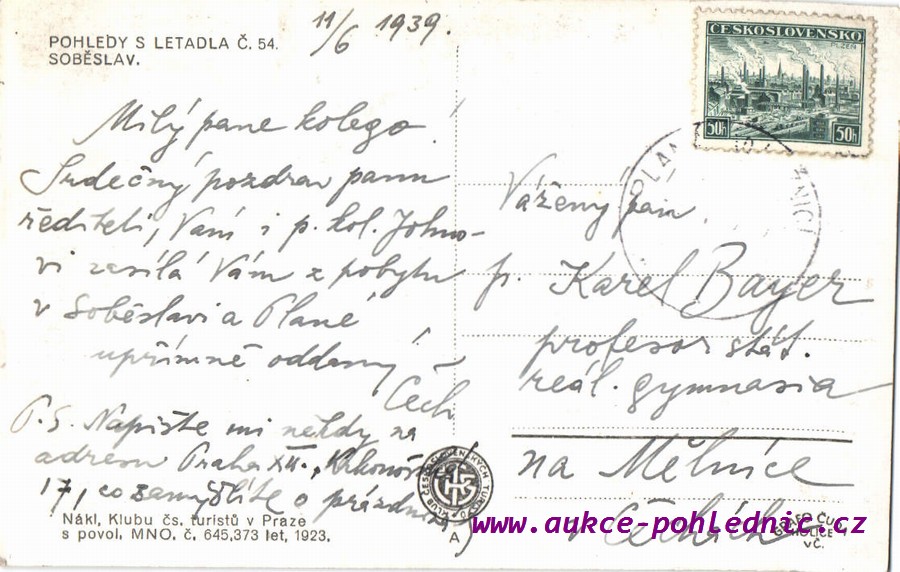 11/6 1939.
POHLEDY S LETADLA Č. 54.
SOBĚSLAV.
Milý pane kolego
Srdečný pozdrav panu
řediteli, Vám i p. kol. Johno-
vi zasílá Vám z pobytu
v Soběslavi a Plané
upřímně oddaný
Čech
P.S. Napište mi někdy na
adresu Praha XII., Krkonošská
17, co zamýšlíte o prázdninách
Nákl. Klubu čs. turistů v Praze
s povol. MNO. č. 645.373 let, 1923.
KLUB ČESKOSLOVENSKÝCH TURISTŮ
A
ČESKOSLOVENSKO
PLZEŇ
50h 50h
PLAN ŽNICÍ
Vážený pan
p. Karel Bayer
profesor stát.
reál. gymnasia
na Mělníce
v Čechách
www.aukce-pohlednic.cz
v Č.